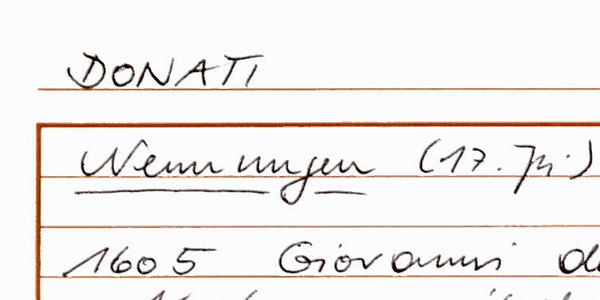 DONATI
Nennungen (17. Jh.)
1605 Giovanni